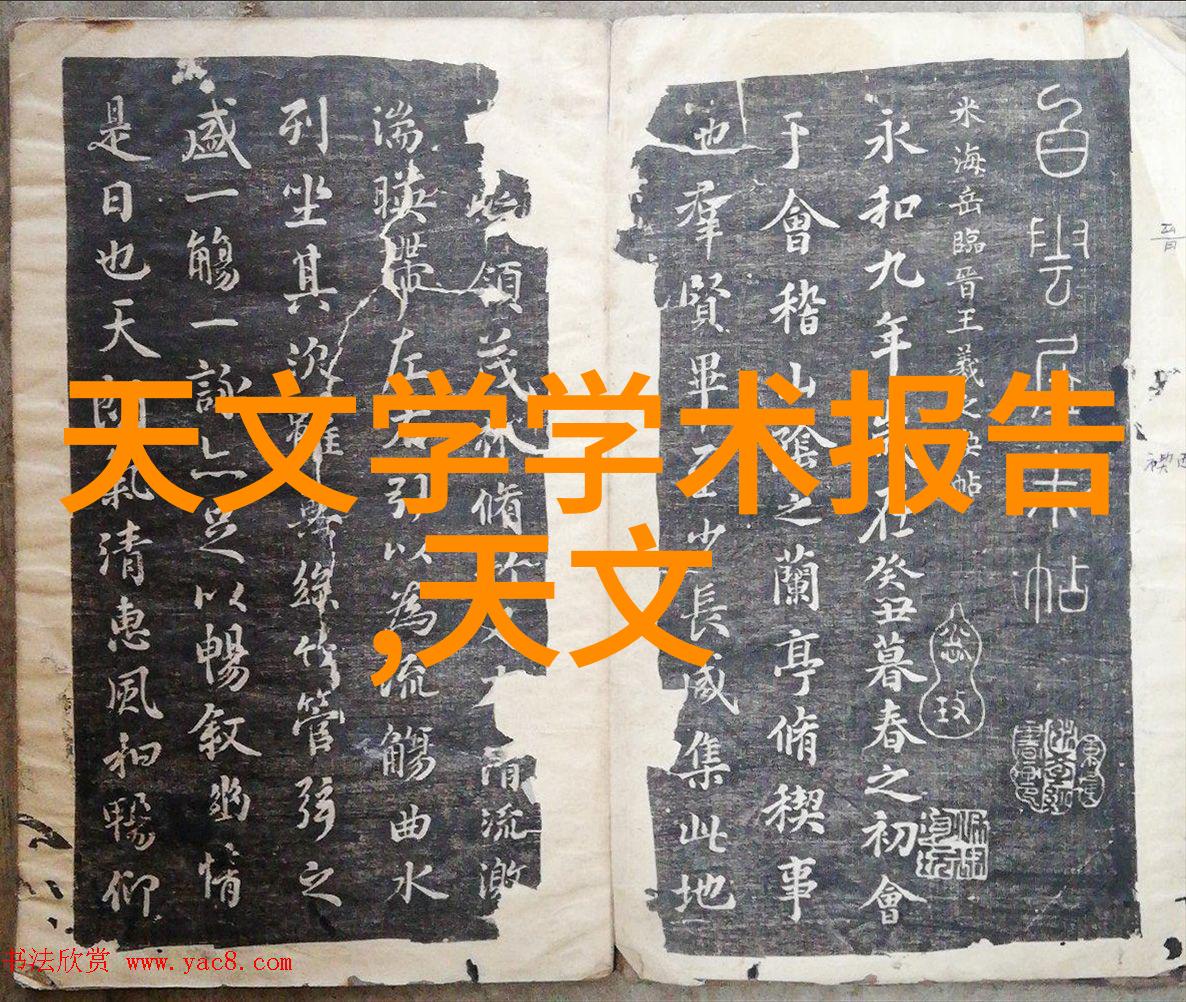 天文学学术报告
,天文
白雲居米帖
米海岳臨晉王羲之帖
永和九年歲在癸丑暮春之初會
于會稽山陰之蘭亭脩禊事
也羣賢畢至少長咸集此地
領茂林脩竹又有清流激
湍暎帶左右引以為流觴曲水
列坐其次雖無絲竹管弦之
盛一觴一詠亦足以暢敘幽情
是日也天朗氣清惠風和暢仰
书法欣赏 www.yac8.com